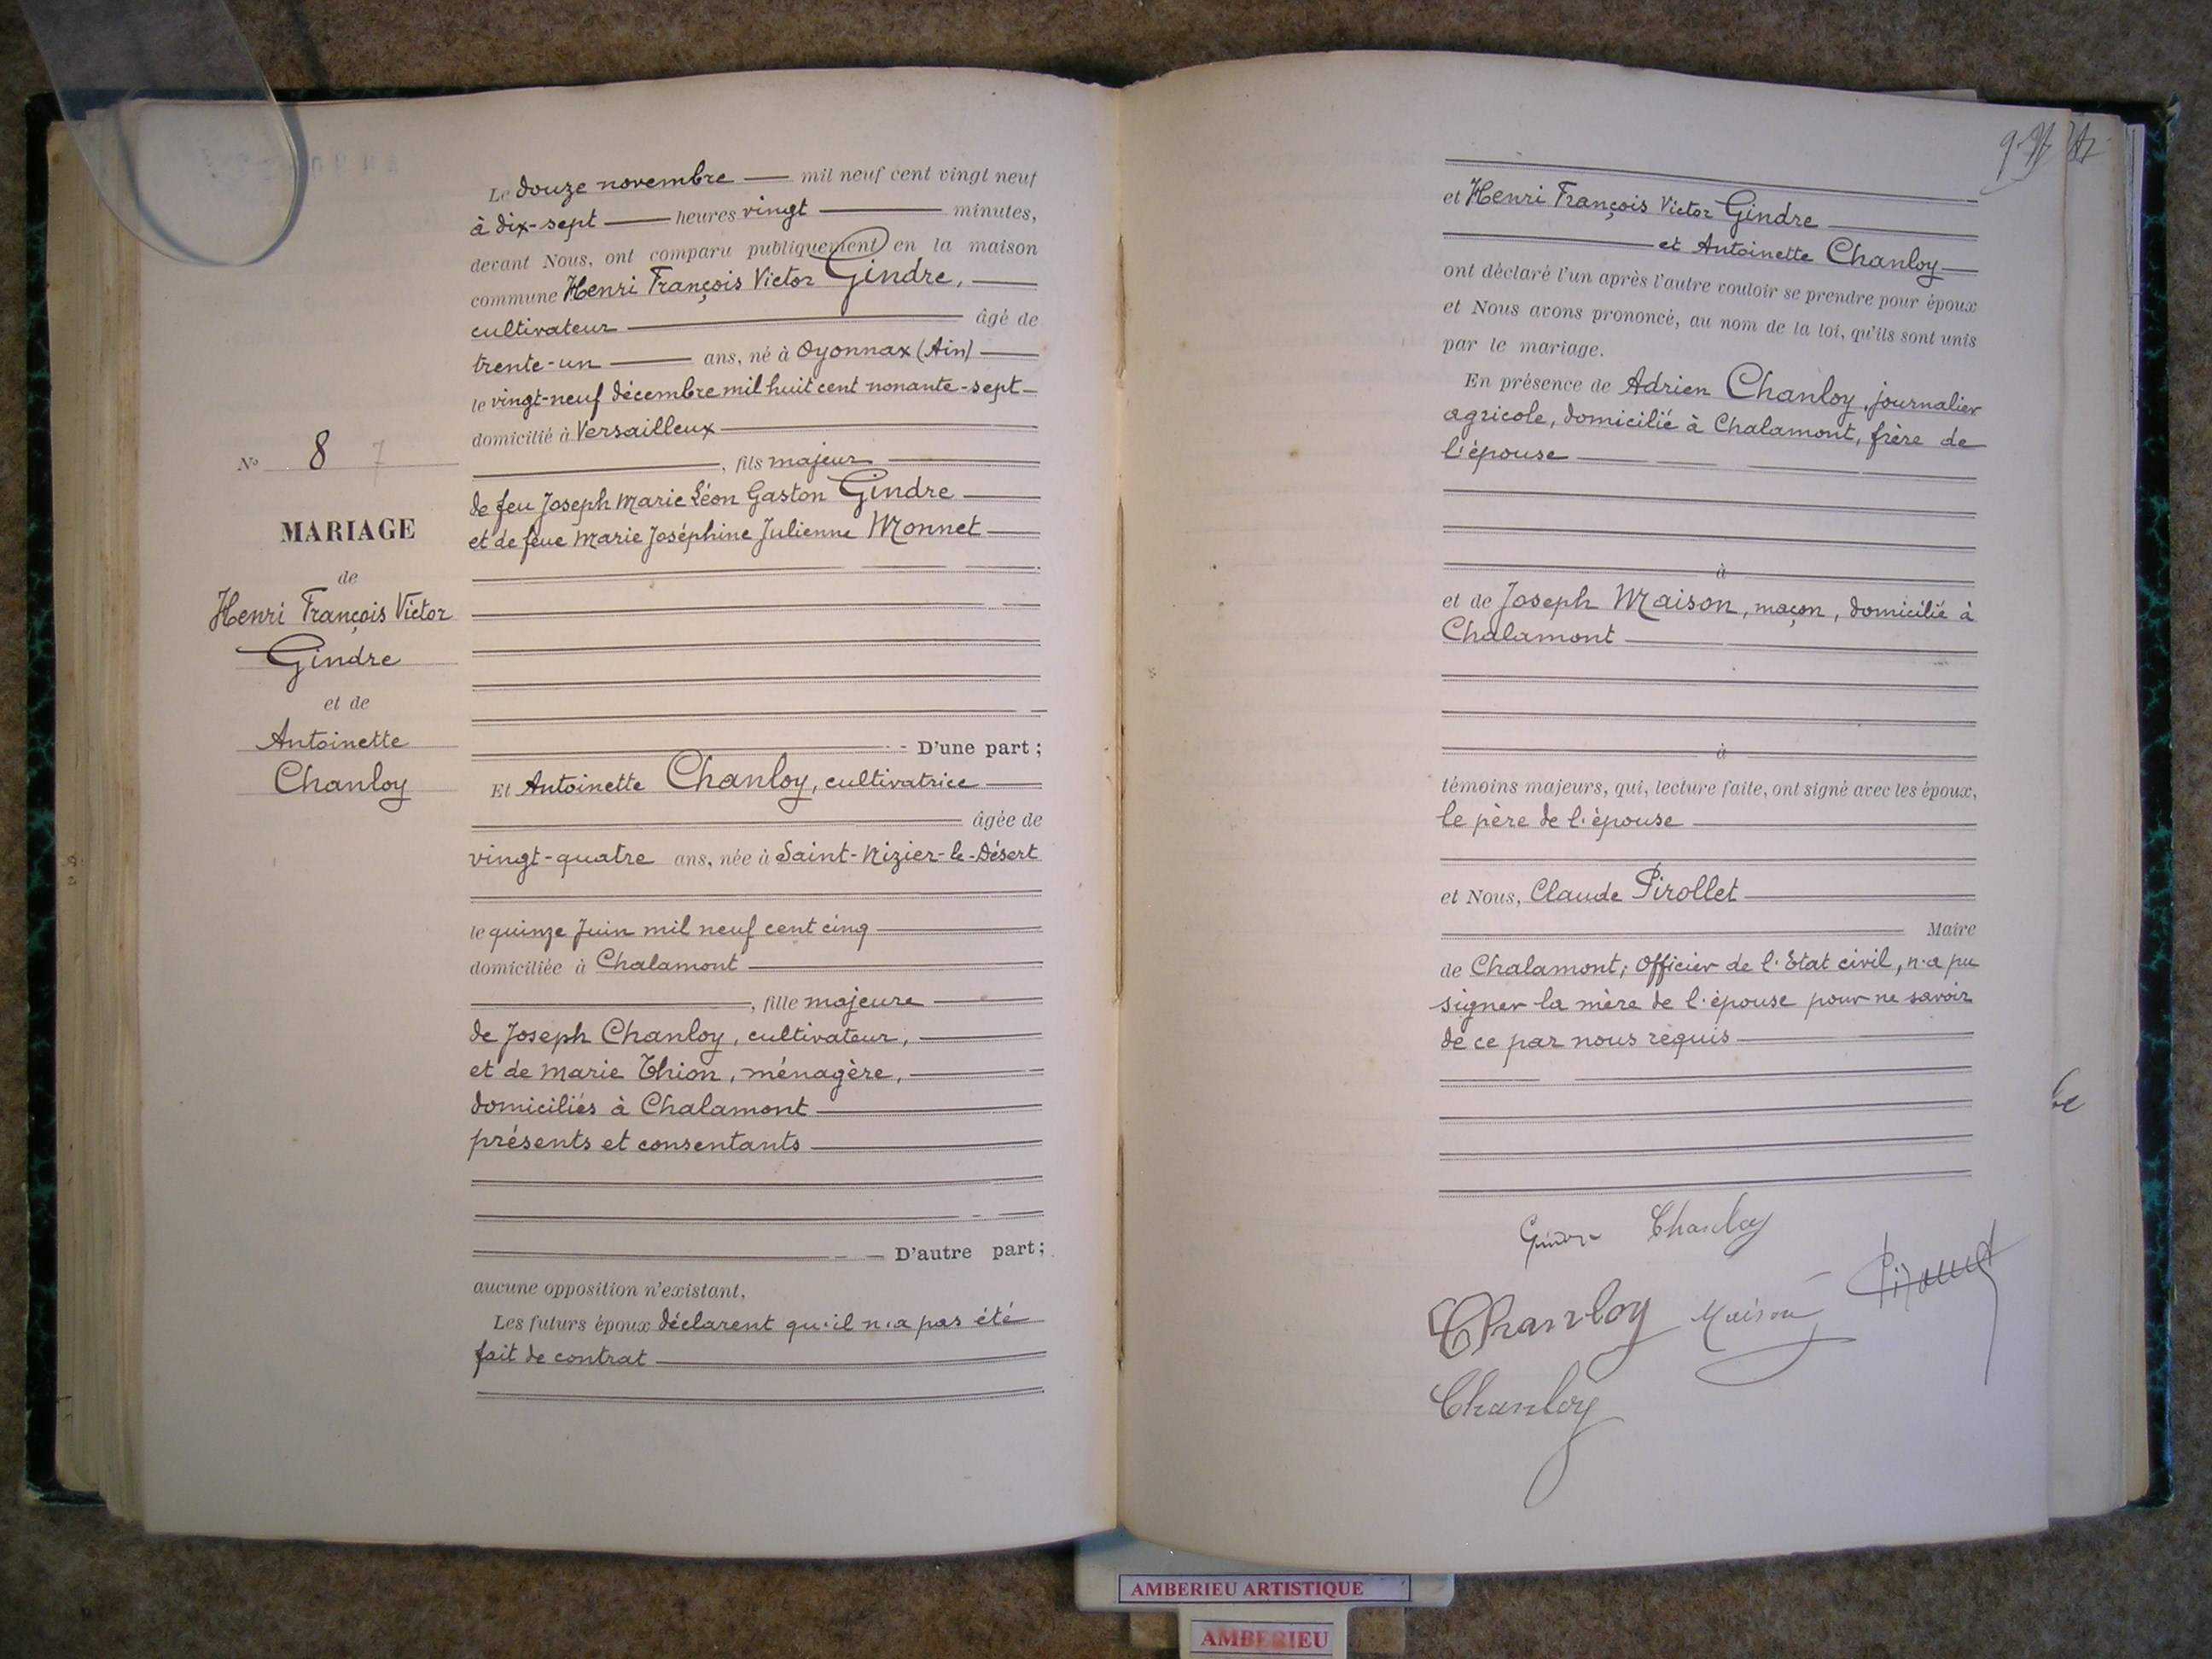 Le douze novembre mil neuf cent vingt neuf
à dix-sept heures vingt minutes,
devant Nous, ont comparu publiquement en la maison
commune Henri François Victor Gindre,
cultivateur âgé de
trente-un ans, né à Oyonnax (Ain)
le vingt-neuf décembre mil huit cent nonante-sept
domicilié à Versailleux
, fils majeur
de feu Joseph Marie Léon Gaston Gindre
et de feue Marie Joséphine Julienne Monnet
D'une part ;
Et Antoinette Chanloy, cultivatrice
âgée de
vingt-quatre ans, née à Saint-Nizier-le-Désert
le quinze Juin mil neuf cent cinq
domiciliée à Chalamont
, fille majeure
de Joseph Chanloy, cultivateur,
et de Marie Thion, ménagère,
domiciliés à Chalamont
présents et consentants
D'autre part ;
aucune opposition n'existant,
Les futurs époux déclarent qu'il n'a pas été
fait de contrat
N° 8 7
MARIAGE
de
Henri François Victor
Gindre
et de
Antoinette
Chanloy
et Henri François Victor Gindre
et Antoinette Chanloy
ont déclaré l'un après l'autre vouloir se prendre pour époux
et Nous avons prononcé, au nom de la loi, qu'ils sont unis
par le mariage.
En présence de Adrien Chanloy, journalier
agricole, domicilié à Chalamont, frère de
l'épouse
à
et de Joseph Maison, maçon, domicilié à
Chalamont
à
témoins majeurs, qui, lecture faite, ont signé avec les époux,
le père de l'épouse
et Nous, Claude Pirollet
Maire
de Chalamont, Officier de l'Etat civil, n'a pu
signer la mère de l'épouse pour ne savoir
de ce par nous requis
Gindre Chanloy
Chanloy Maison Pirollet
Chanloy
AMBERIEU ARTISTIQUE
AMBERIEU